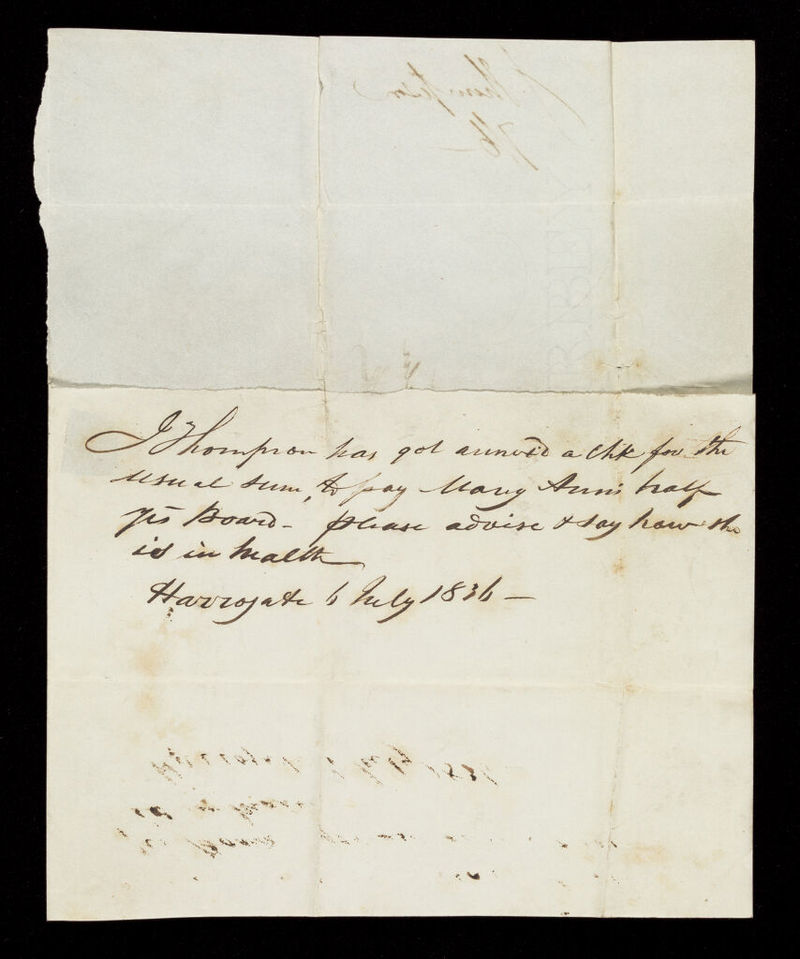 J Thompson has got annex'd a Chk for the
usual sum, to pay Mary Ann's half
yrs Board - please advise & say how she
is in health
Harrogate 6 July 1836 -